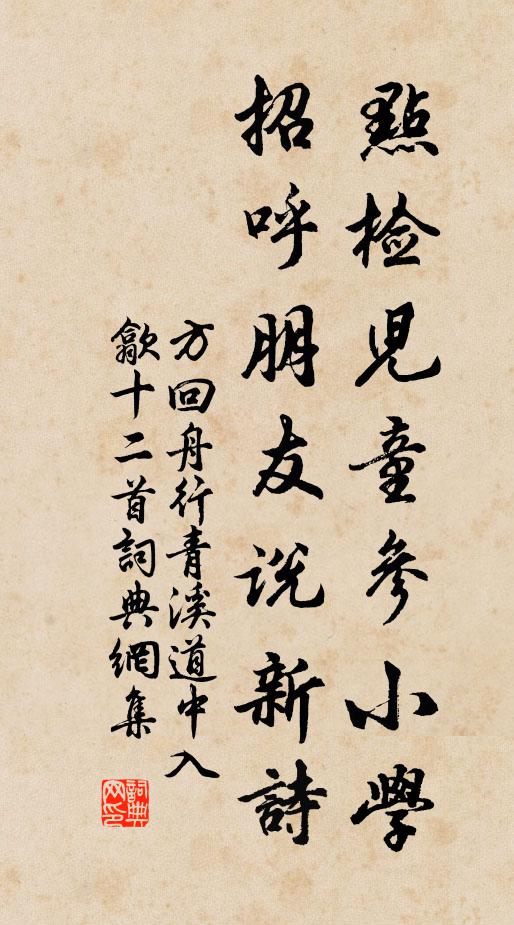 點檢兒童參小學
招呼朋友說新詩
方回舟行青溪道中入
歙十二首詞典網集
詞典
网印